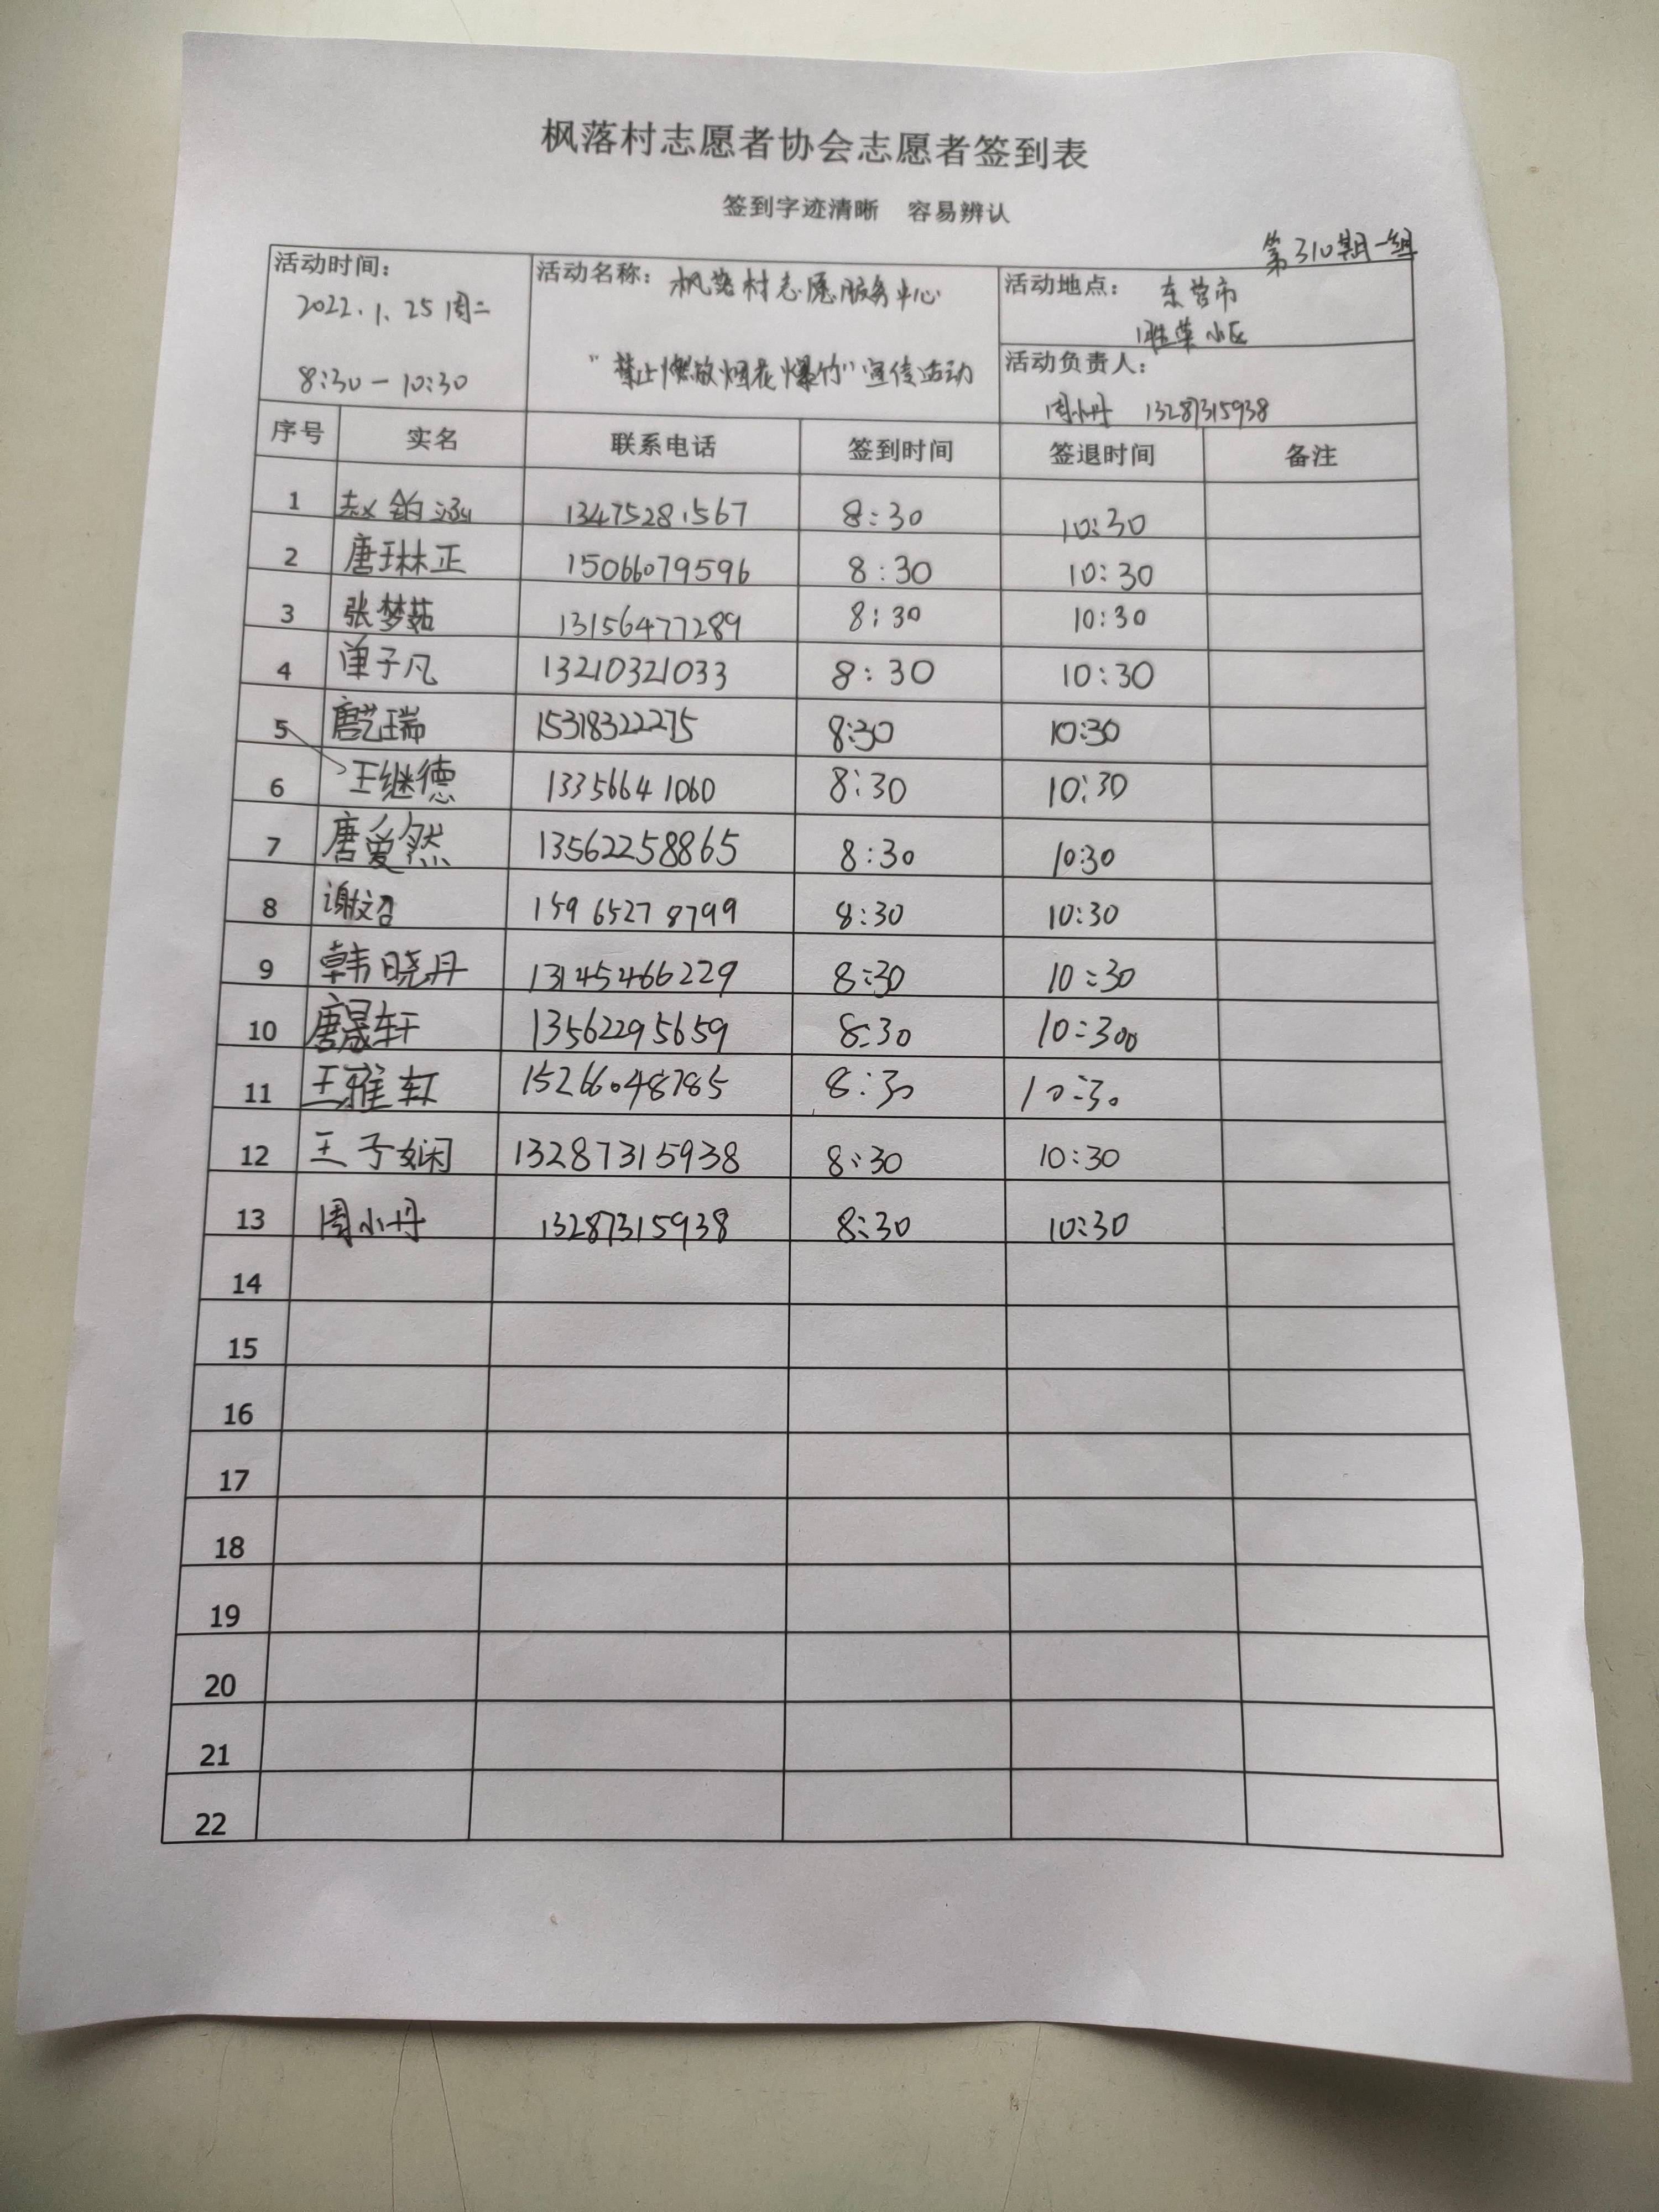 枫落村志愿者协会志愿者签到表
签到字迹清晰 容易辨认
第310期一组
活动时间： 2022.1.25周二 8:30-10:30
活动名称： 枫落村志愿服务中心
"禁止燃放烟花爆竹"宣传活动
活动地点： 东营市
胜荣小区
活动负责人：
周小丹 13287315938
序号 实名 联系电话 签到时间 签退时间 备注
1 赵钧涵 13475281567 8:30 10:30
2 唐琳正 15066079596 8:30 10:30
3 张梦茹 13156477289 8:30 10:30
4 单子凡 13210321033 8:30 10:30
5 唐艺瑞 15318322275 8:30 10:30
6 王继德 13356641060 8:30 10:30
7 唐爱然 13562258865 8:30 10:30
8 谢文召 15965278799 8:30 10:30
9 韩晓丹 13145466229 8:30 10:30
10 唐晟轩 13562295659 8:30 10:300
11 王雅轩 15266048785 8:30 10:30
12 王子娴 13287315938 8:30 10:30
13 周小丹 13287315938 8:30 10:30
14
15
16
17
18
19
20
21
22